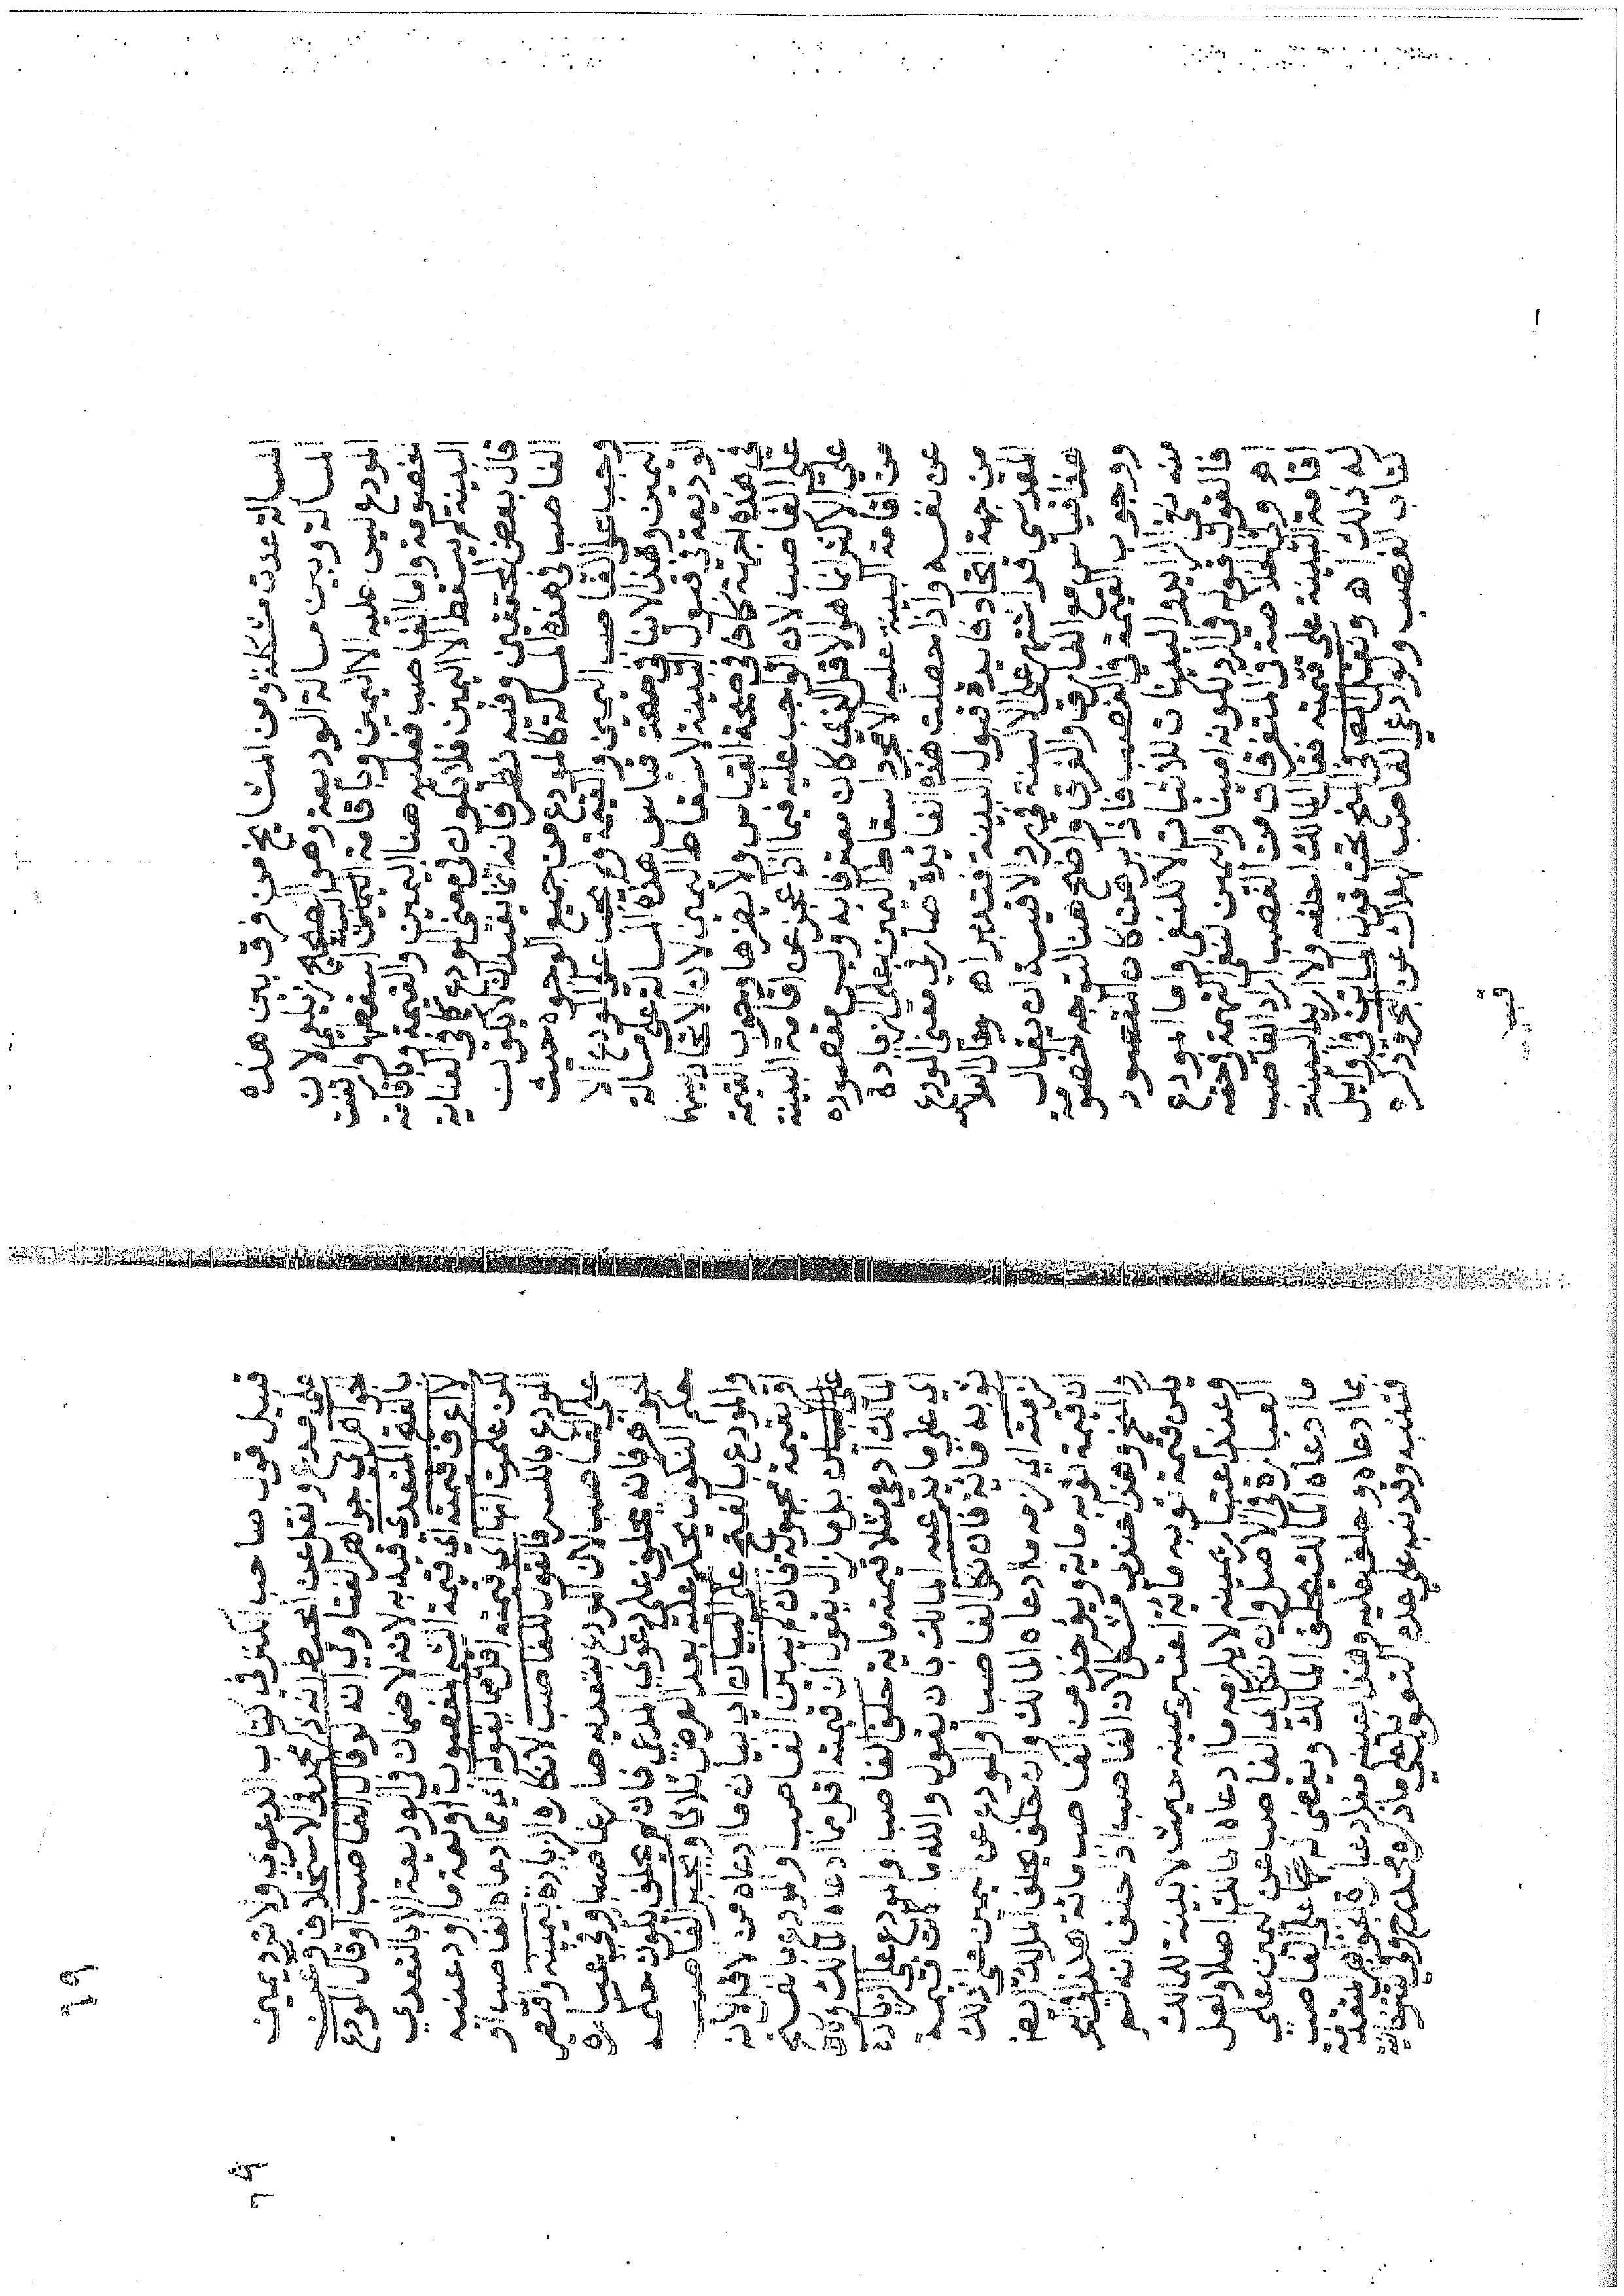 المسالة عدت مشكلة ومن المشايخ من فرق بين هذه
المسالة وبين مسالة الوديعة وهو الصحيح زيلعي لان
المودع ليس عليه الا اليمين وباقامة البينة اسقطها وارتفعت
الخصومة واما الغاصب فعليه هنا اليمين والقيمة وباقامة
البينة لم يسقط الا اليمين فلا يكون في معنى المودع كما في العناية
قال بعض المحققين وفيه نظر فانه انما يفيد ان لا يكون
الغاصب في هذه المسالة كالمودع من جميع الوجوه حيث
وجب على الغاصب اليمين والقيمة ولم يجب على المودع الا
اليمين وهذا لا ينافي صحة قياس هذه المسالة على مسالة
الوديعة في قبول البينة لاسقاط اليمين لان الاتحاد بينهما
في هذه الجهة كاف في صحة القياس ولا يضرها وجوب القيمة
على الغاصب لان الواجب عليه فيما اذا عجز عن اقامة البينة
على الاكثر انما هو الاقل الذي كان معترفا به وليس مقصوده
من اقامة البينة عليه الا مجرد اسقاط اليمين على الزيادة
عن نفسه واذا حصلت هذه الفايدة صار في معنى المودع
من جهة اتحاد فايدة قبول البينة فتدبر اه وقال العلامة
المقدسي قد اشتهر على الالسنة في رد الاقيسة ان يقال
هذا قياس مع الفارق والفرق واضح هنا لتوجه الخصومة
ووجوب القيمة في الغصب فاذا برهن كان المقصود
منه نفي الزايد والبينات للاثبات لا للنفي واما المودع
فالقول قوله في الرد لكونه امينا واليمين لنفي التهمة
اه وفي الخلاصة في المتفرقات من الغصب اراد الغاصب
اقامة البينة على قيمته فقال المالك احلفه ولا اريد البينة
له ذلك اه ونقل المص في المنح تحت قول الماتن في اوايل
كتاب الغصب ولو ادعى الغاصب الهلاك عن البحر وذكره
قبيل
١٩
قبيل قول صاحب الكنز في كتاب الدعوى ولا ترد يمين
على مدع ونقل عن المحيط انه ذكر محمد في الاستحلاف وعن
جواهر اي جواهر الفتاوى انه لو قال الغاصب او قال المودع
بالفتح المتعدي قيد به لانه لا ضمان في الوديعة الا بالتعدي
لا اعرف قيمته اي قيمة الشي المغصوب او قيمة ما اودعنيه
لكن علمت انها اي قيمته اقل مما يقوله اي مما ادعاه الغاصب او
المودع بالكسر فالقول للغاصب لانكاره الزيادة بيمينه واقتصر
على الغاصب لان المودع بتعديه صار غاصبا وفي عبارة
الجوهر فانه يحلف على دعوى المدعي فان لم يحلف يكون
حكم النكول يحكم عليه بعد العرض ثلاثا ويجبر الغاصب
والمودع بالفتح على البيان اي بيان ما ادعاه من الاقل لانه
اقر بقيمة مجهولة فان لم يبين الغاصب والمودع بالفتح
بل ما زال يقول ان قيمته اقل مما ادعاه المالك وكان
المالك ادعى مثلا قيمته ماية حلف الغاصب او المودع على الزيادة
اي على ما يدعيه المالك بان يقول والله ما كانت قيمة
ثوبه ماية فان نكل الغاصب او المودع عن اليمين على ذلك
لزمته اي لزمه ما ادعاه المالك وان حلف يحلف المالك ايضا
ان قيمة ثوبه ماية ويؤخذ من الغاصب ماية هكذا في البحر
والمنح وهذا عندي مشكل لان الغاصب اذا حلف انه لم
يكن قيمة ثوبه ماية اعتبر يمينه حيث لا بينة للمالك
وعند اعتبار يمينه لا يلزمه ما ادعاه المالك اصلا ولعل
العبارة في الاصل وان نكل اي الغاصب عن اليمين على
ما ادعاه المالك يحلف المالك ويقضى له على الغاصب
بما ادعاه وحلف عليه وهذا بعينه مفاد عبارة الجواهر المتقدمة
فتنبه وقد نبه على عدم التعويل على ما ذكره محمد